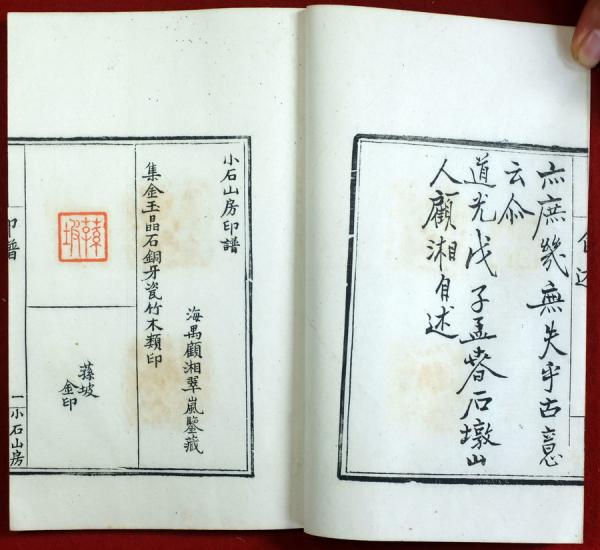 自述
亦庶幾無失乎古意
云尒
道光戊子孟春石墩山
人顧湘自述
小石山房印譜
海禺顧湘翠嵐鑒藏
集金玉晶石銅牙瓷竹木類印
蓀坡
蓀坡
金印
印譜
一
小石山房